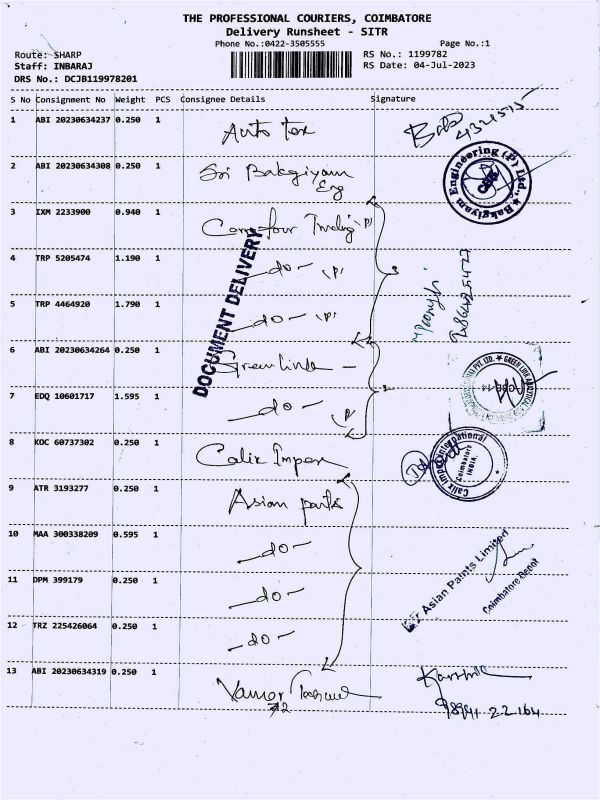 THE PROFESSIONAL COURIERS, COIMBATORE
Delivery Runsheet - SITR
Phone No.:0422-3505555
Page No.:1
Route: SHARP
RS No.: 1199782
Staff: INBARAJ
RS Date: 04-Jul-2023
DRS No.: DCJB119978201
S No Consignment No Weight PCS Consignee Details Signature
1 ABI 20230634237 0.250 1 Auto tex
2 ABI 20230634308 0.250 1 Sri Bakgiyam
Eng
Bakgiyam Engineering (P) Ltd.,
3 IXM 2233900 0.940 1 Trading 'P'
4 TRP 5205474 1.190 1 - do - 'P'
3
5 TRP 4464920 1.790 1 - do - 'P'
DOCUMENT DELIVERY
6 ABI 20230634264 0.250 1 Green link -
7 EDQ 10601717 1.595 1 - do - 'P'
2
8 KOC 60737302 0.250 1 Calix Impex
Calix Impex International
Coimbatore
INDIA.
9 ATR 3193277 0.250 1 Asian paints
10 MAA 300338209 0.595 1 - do -
11 DPM 399179 0.250 1 - do -
For Asian Paints Limited
Coimbatore Depot
12 TRZ 225426064 0.250 1 - do -
13 ABI 20230634319 0.250 1